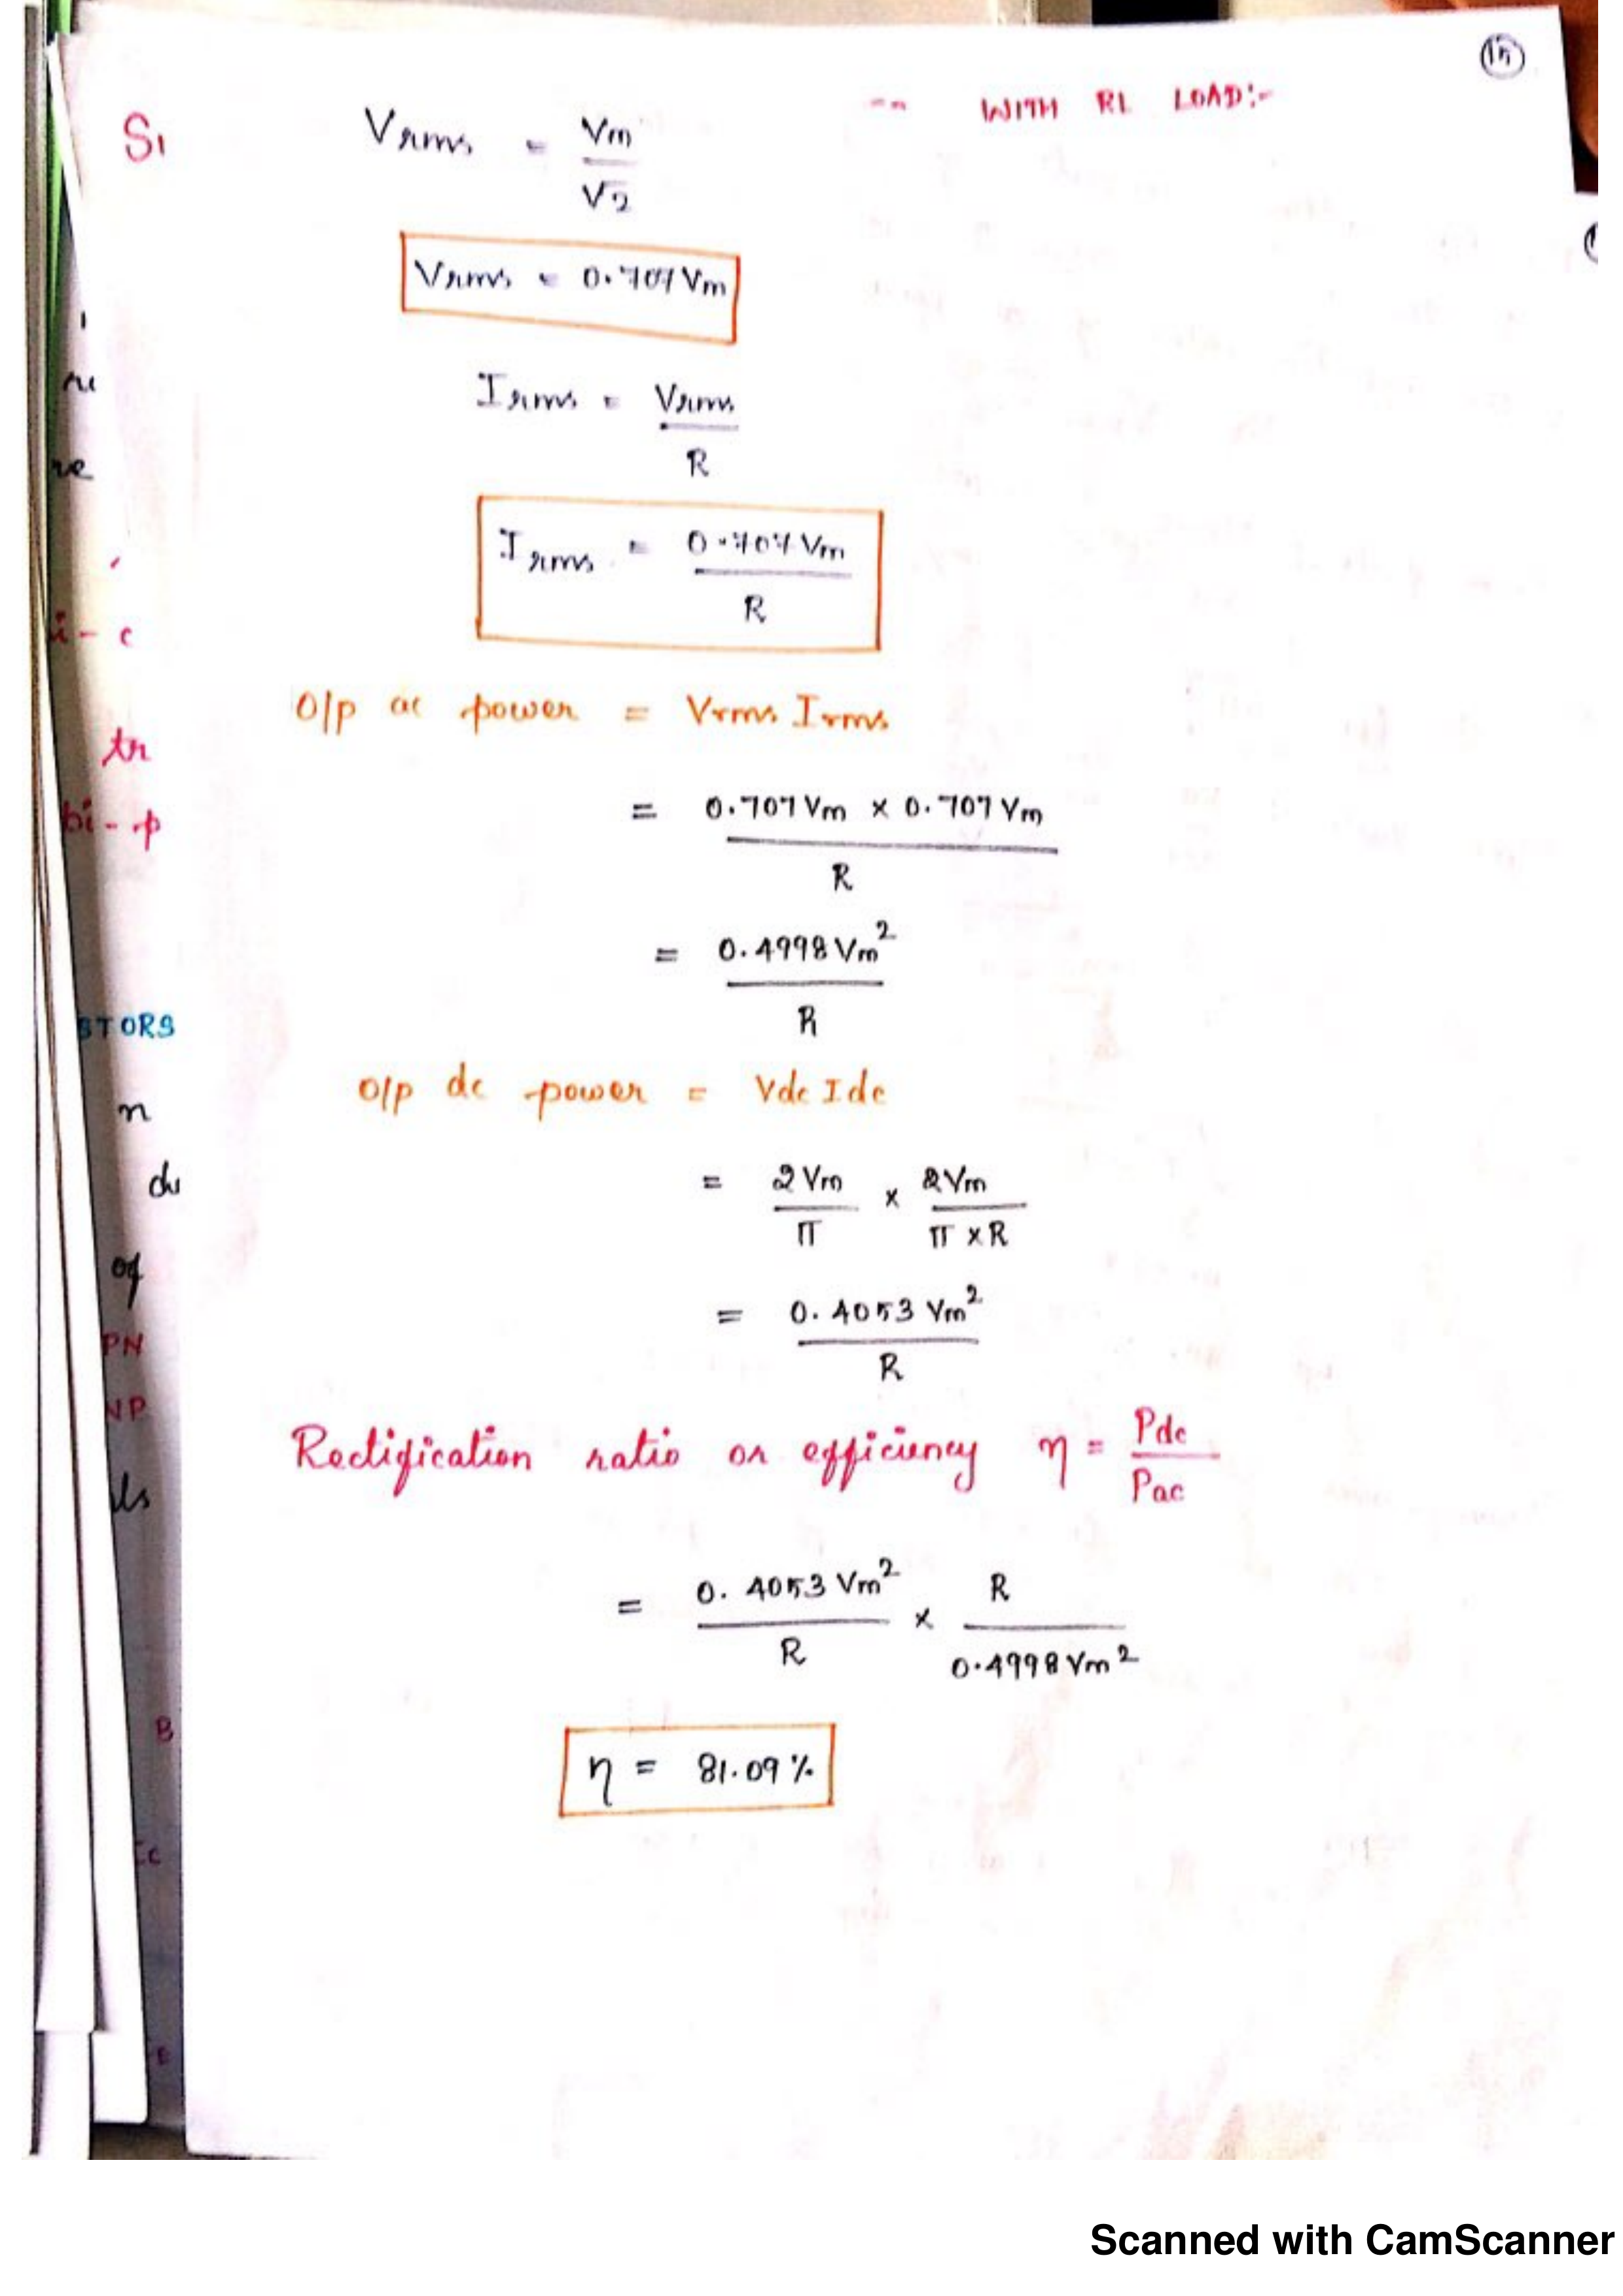 15
WITH RL LOAD:-
S1
Vrms = Vm
√2
Vrms = 0.707 Vm
Irms = Vrms
R
Irms = 0.707 Vm
R
O/p ac power = Vrms Irms
= 0.707 Vm × 0.707 Vm
R
= 0.4998 Vm²
R
O/p dc power = Vdc Idc
= 2Vm × 2Vm
π π × R
= 0.4053 Vm²
R
Rectification ratio or efficiency η = Pdc
Pac
= 0.4053 Vm² × R
R 0.4998 Vm²
η = 81.09 %
re
i- c
tr
bi- p
STORS
n
of
PN
NP
ls
B
Scanned with CamScanner